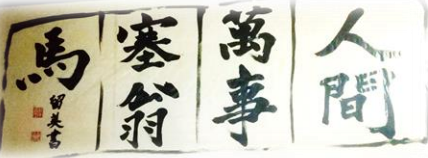 人間
萬事
塞翁
馬
留英書